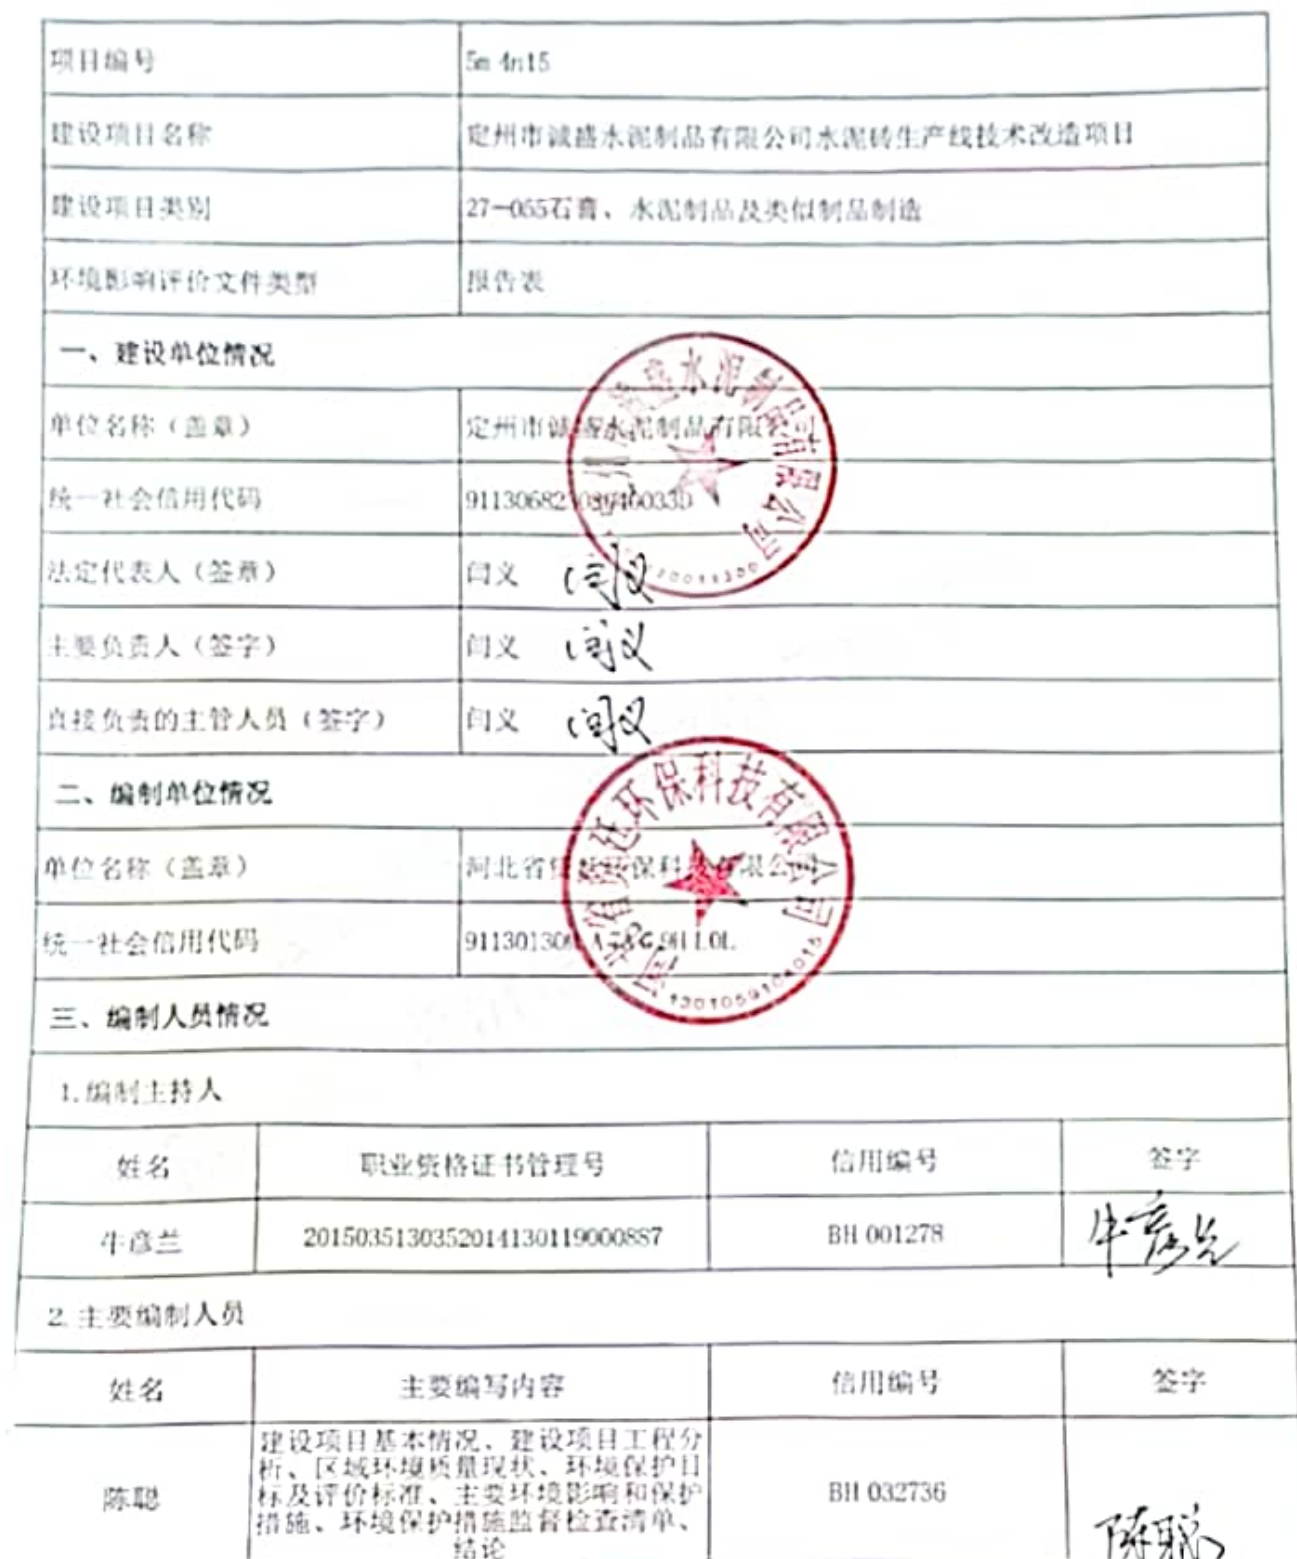 项目编号 5m4n15
建设项目名称 定州市诚盛水泥制品有限公司水泥砖生产线技术改造项目
建设项目类别 27—055石膏、水泥制品及类似制品制造
环境影响评价文件类型 报告表
一、建设单位情况
单位名称（盖章） 定州市诚盛水泥制品有限公司
统一社会信用代码
法定代表人（签章） 闫义 闫义
主要负责人（签字） 闫义 闫义
直接负责的主管人员（签字） 闫义 闫义
二、编制单位情况
单位名称（盖章） 河北省 环保科技有限公司
统一社会信用代码
三、编制人员情况
1.编制主持人
姓名 职业资格证书管理号 信用编号 签字
牛彦兰 2015035130352014130119000887 BH 001278 牛彦兰
2.主要编制人员
姓名 主要编写内容 信用编号 签字
建设项目基本情况、建设项目工程分
析、区域环境质量现状、环境保护目
标及评价标准、主要环境影响和保护
措施、环境保护措施监督检查清单、
结论
陈聪 BH 032736 陈聪